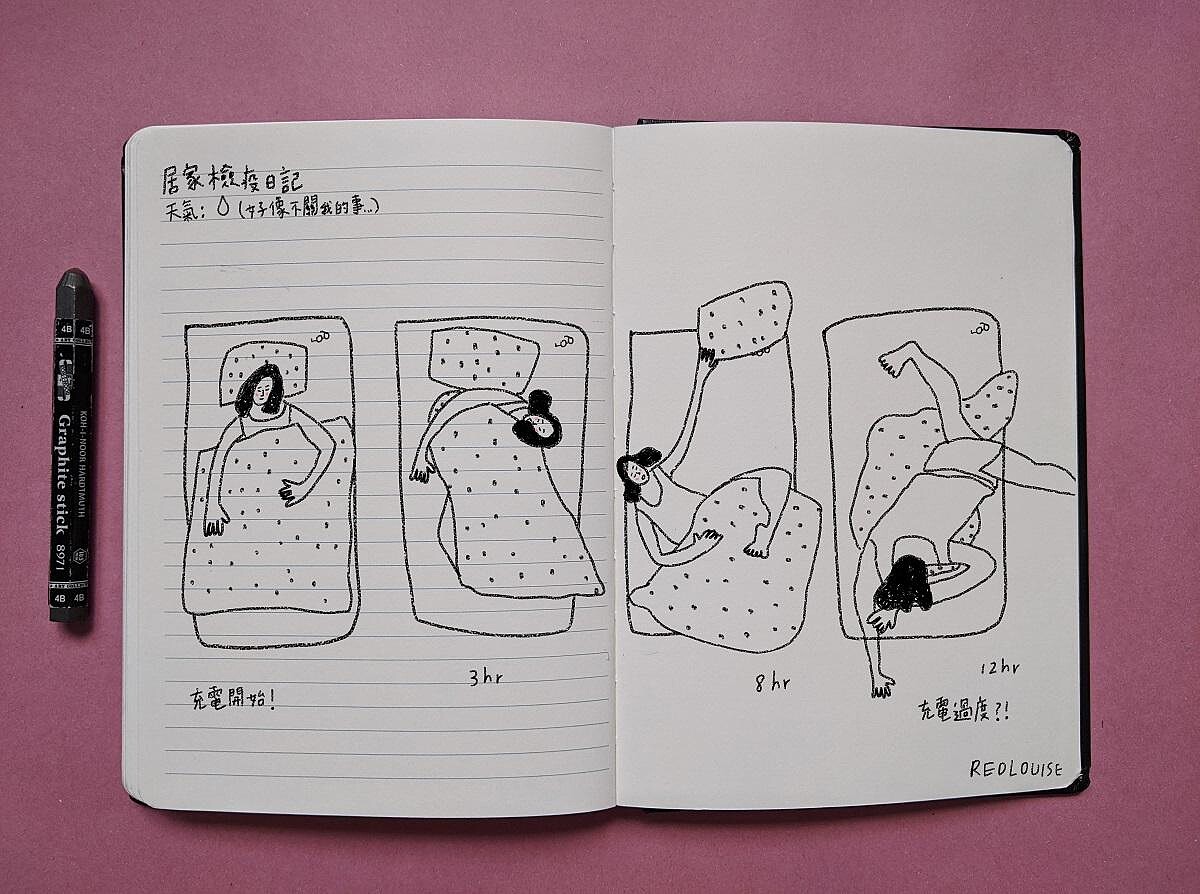 居家檢疫日記
天氣: (好像不關我的事...)
充電開始!
3hr
8hr
12hr
充電過度?!
REDLOUISE
4B 4B
KOH-I-NOOR HARDTMUTH
Graphite stick 8971
4B 4B